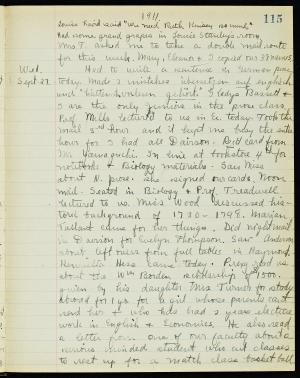 1911
115
Louise Baird said "We need Ruth Kinsey so much"
Had some grand grapes in Louise Stanley's room.
Mrs T. asked me to take a double mail route
for this week. Mary, Eleanor & I copied our
Wed. Had to write a sentence in German prose
Sept 27. today. Made 3 mistakes
and Gladys Bassett &
I are the only Juniors in the prose class.
Prof. Mills lectured to us in Ec. today. Took the
mail 5th hour and it kept me busy the entire
hour for I had all Davison. Post card from
Mr. Yamaguchi. In line at bookstore for
notebook & Biology materials. Saw Miss
about N. prose. She signed our cards. Noon
mail. Seated in Biology & Prof. Treadwell
lectured to us. Miss Wood discussed his-
torical background of 1730-1798. Marian
Tallant came for her things. Did night mail
in Davison for Evelyn Thompson. Saw
about left overs from full tables in Raymond.
Hess came today. Prexy told us
about the Wm Borden scholarship of $500.
given by his daughter Mrs Turner for study
abroad for 1 yr for a girl whose parents can't
send her & who has had 2 years elective
work in English & Economics. He also read
a letter from one of our faculty about a
serious minded student who cut classes
to rest up for a match class basket ball